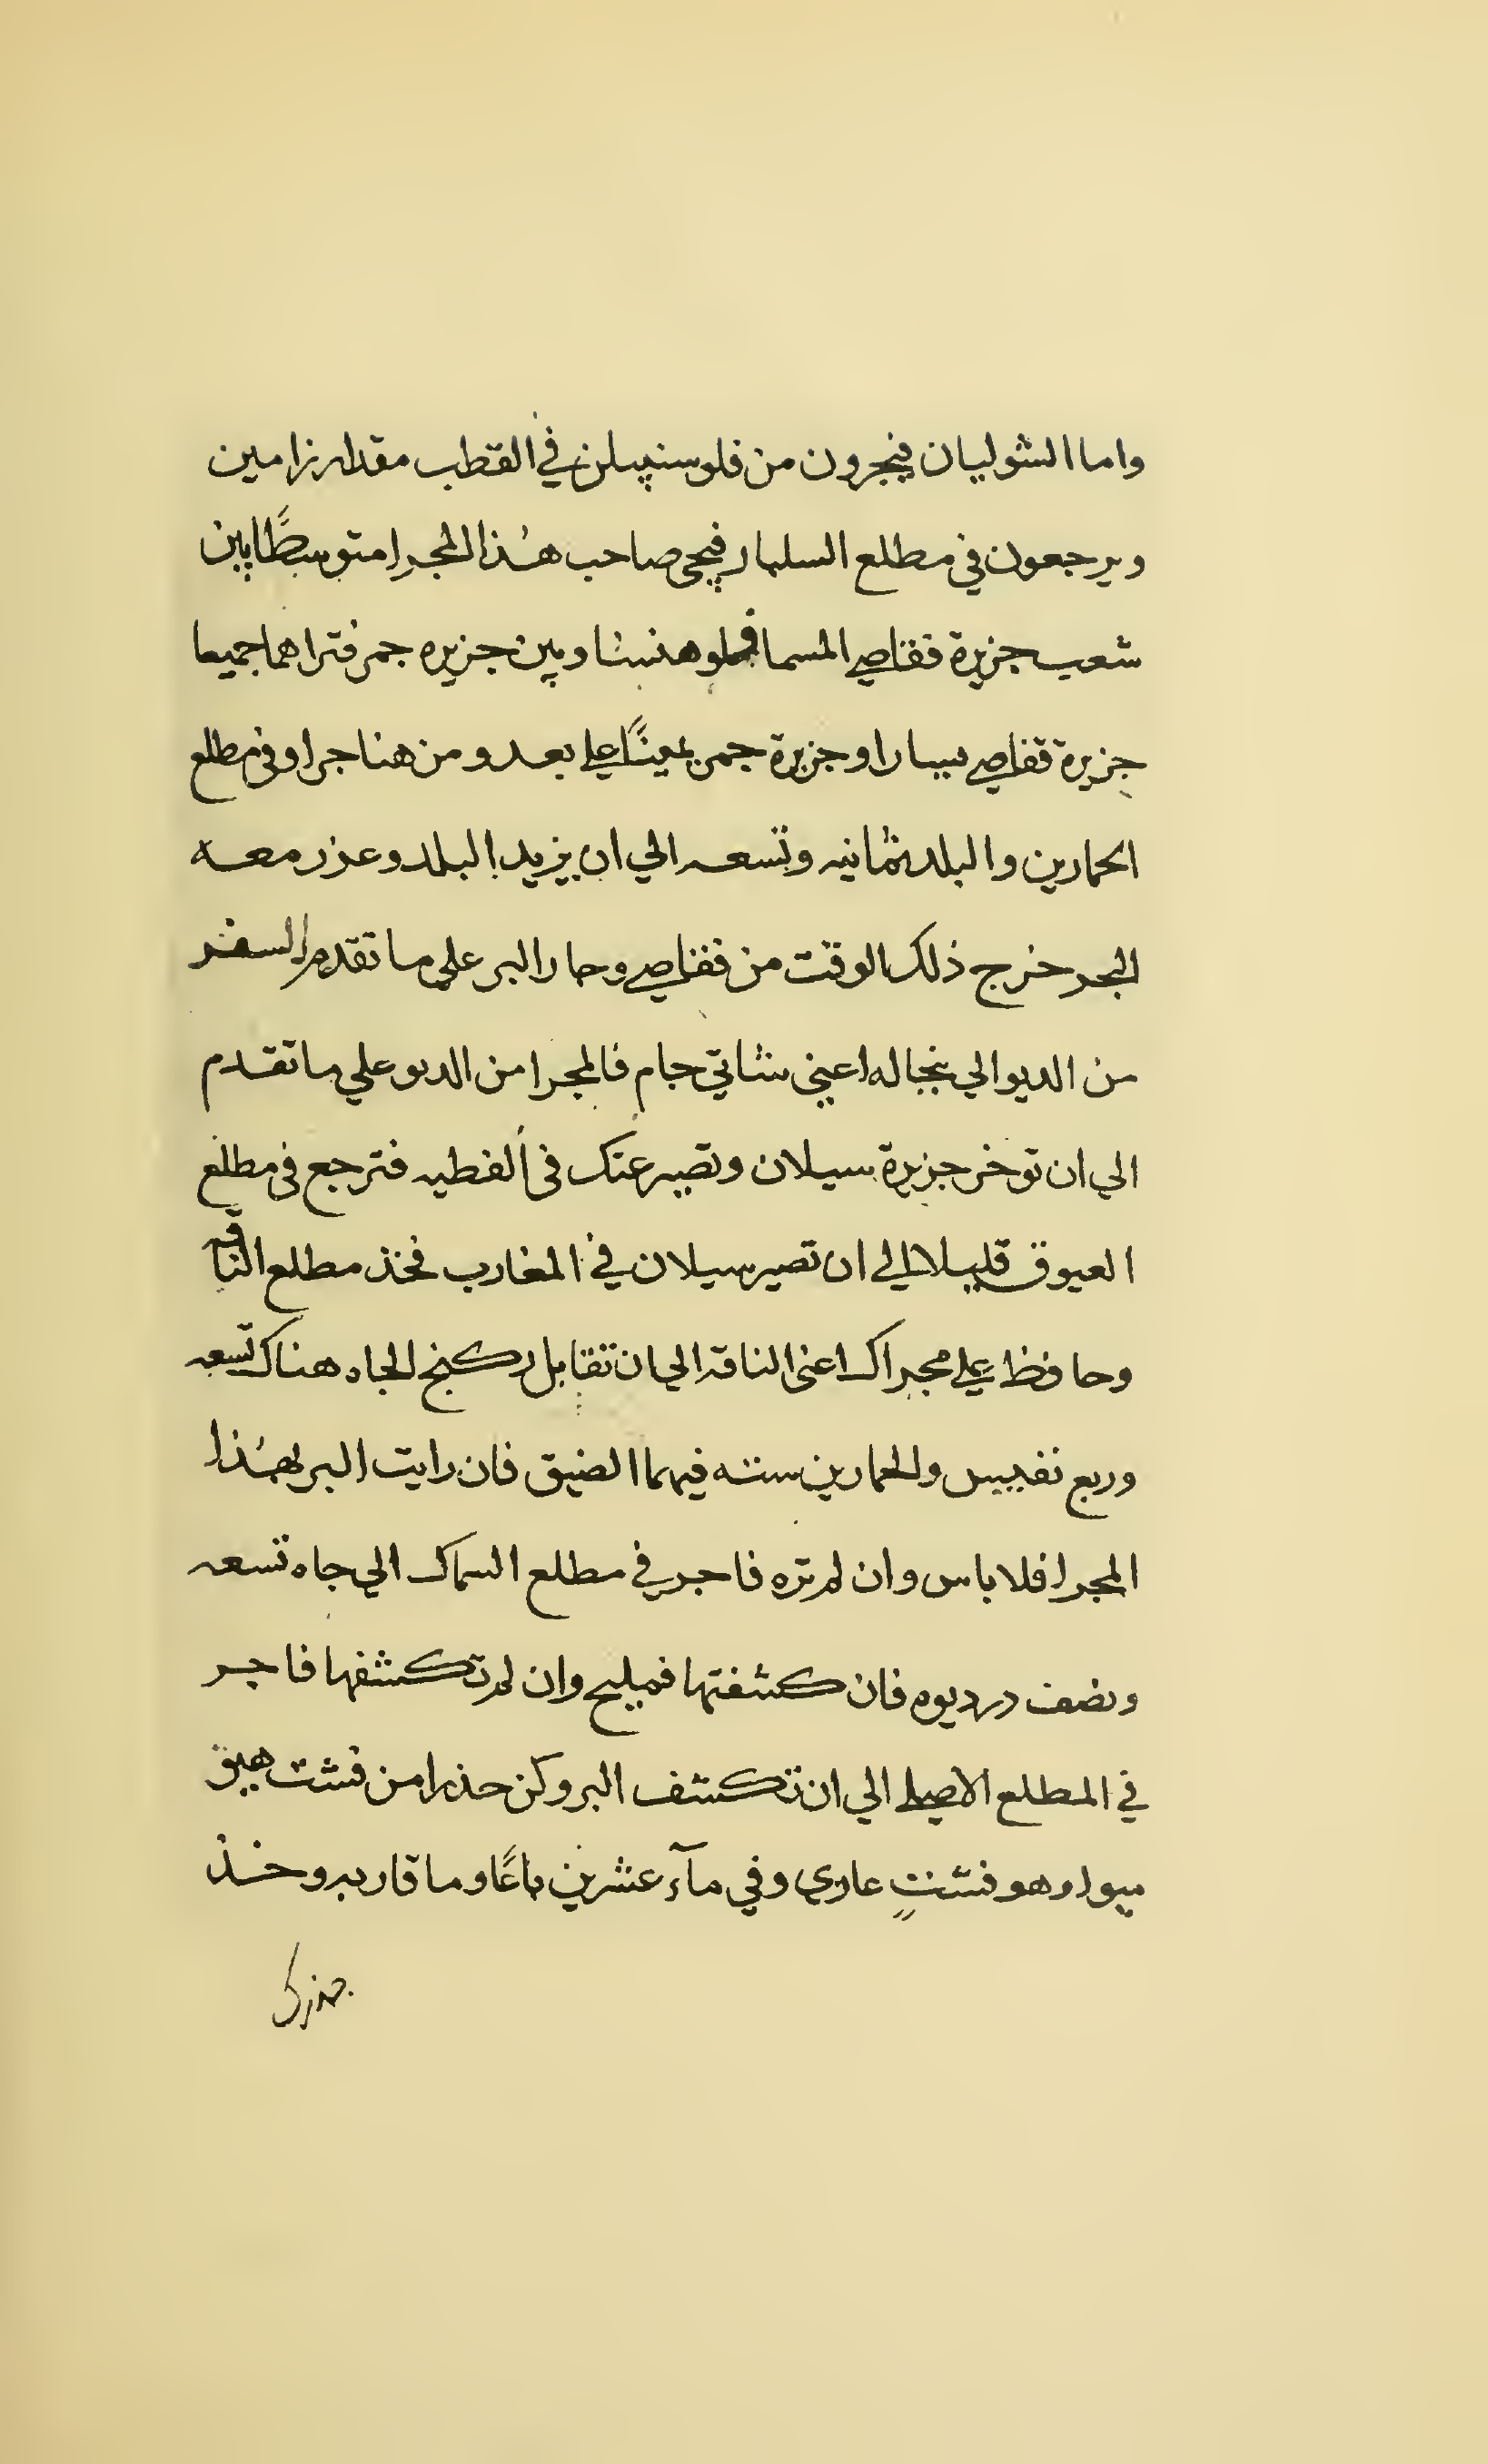 واما الشوليان فيجرون من فلو سنبيلن في القطب مقدار زامين
ويرجعون في مطلع السلبار فيجي صاحب هذا المجرا متوسطًا بين
شعب جزيرة قفاصي المسما فلو هنسنا وبين جزيره جمر فتراهما جميعا
جزيرة قفاصي يسارا وجزيرة جمر يمينًا علي بعد ومن هنا جرا وفي مطلع
الحمارين والبلد ثمانيه وتسعه الي ان يزيد البلد وعزر معه
البحر خرج ذلك الوقت من قفاصي وحار البر علي ما تقدم السفر
من الديو الي بنجاله اعني شاتي جام فالمجرا من الديو علي ما تقدم
الي ان توخر جزيرة سيلان وتصير عنك في القطبيه فترجع في مطلع
العيوق قليلا الي ان تصير سيلان في المغارب فخذ مطلع الناقه
وحافظ علي مجراك اعني الناقة الي ان تقابل ركنج الجاه هناك تسعه
وربع نفيس والحمارين سته فيهما الضيق فان رايت البر بهذا
المجرا فلا باس وان لم تره فاجر في مطلع السماك الي جاه تسعه
ونصف درديوه فان كشفتها فمليح وان لم تكشفها فاجر
في المطلع الاصلي الي ان تكشف البر وكن حذرا من فشت هيق
ميوا وهو فشت عاري وفي مآء عشرين باعًا وما قاربه وخذ
حذرك